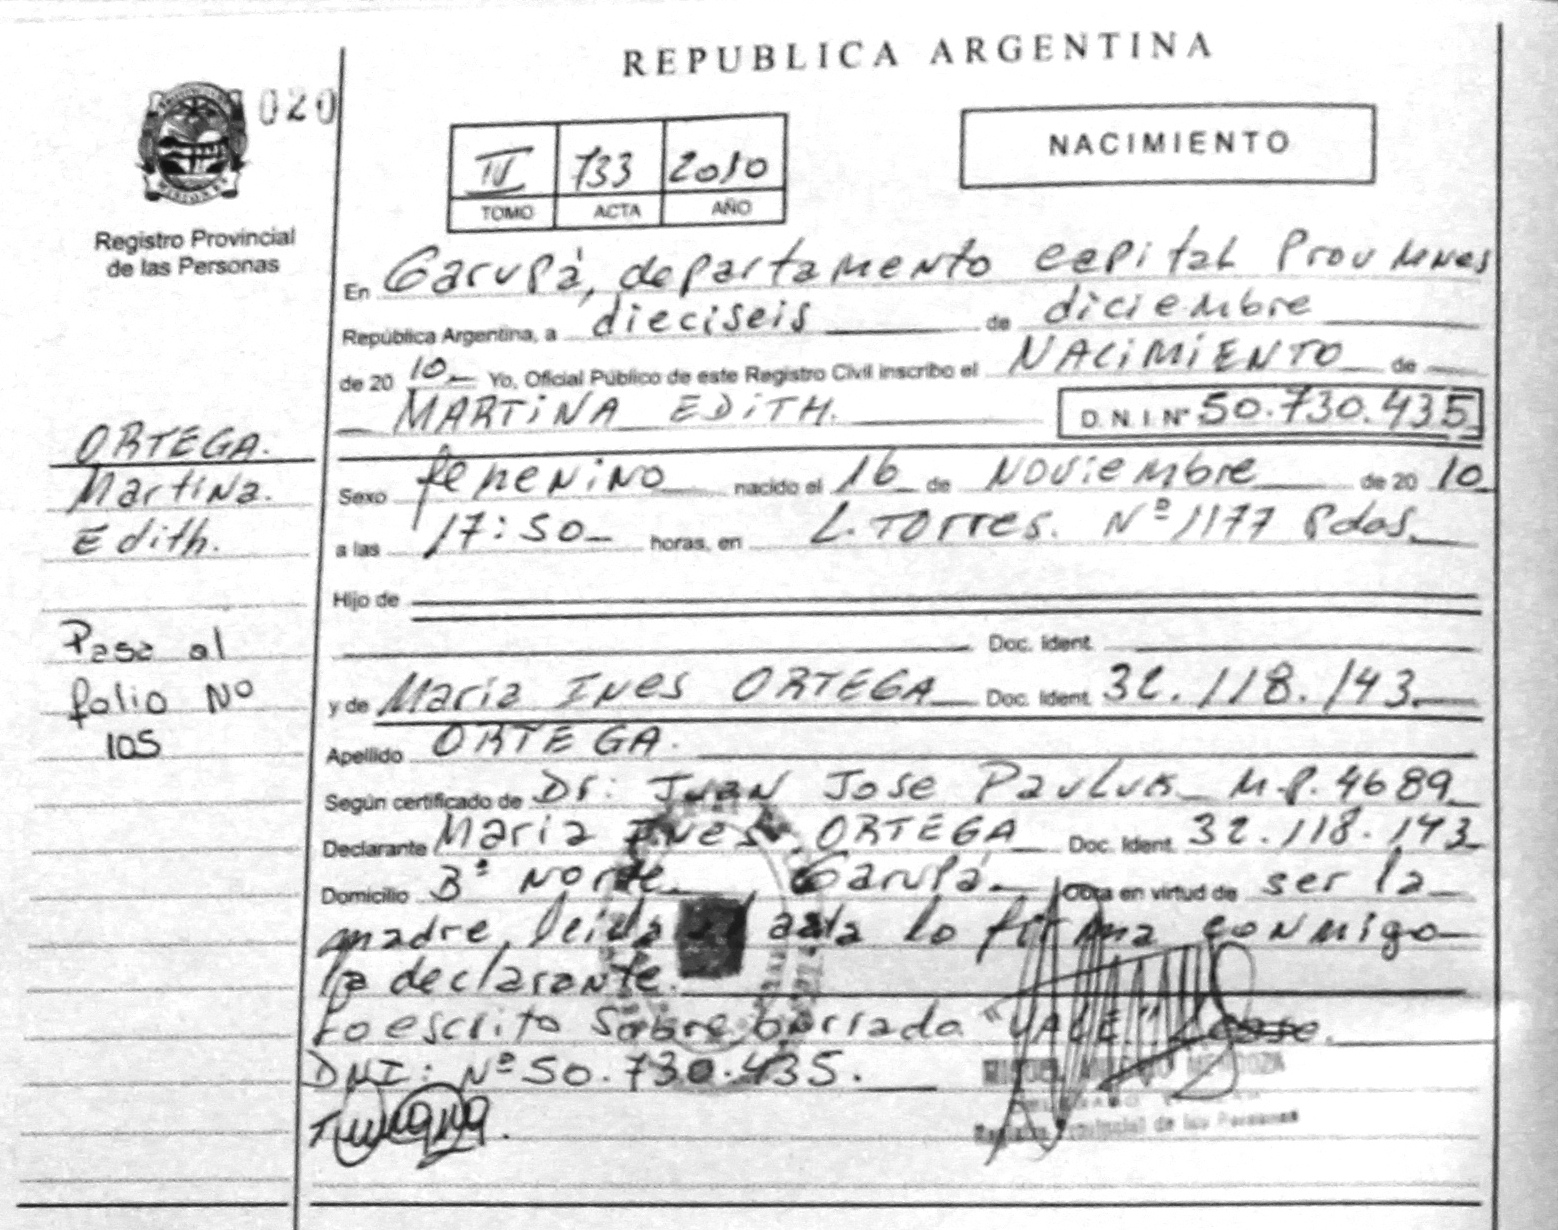 REPUBLICA ARGENTINA
020
PROVINCIA DE
MISIONES
Registro Provincial
de las Personas
IV 733 2010
TOMO ACTA AÑO
NACIMIENTO
En Garupá, departamento capital Prov
República Argentina, a dieciseis de diciembre
de 20 10 Yo, Oficial Público de este Registro Civil inscribo el NACIMIENTO de
MARTINA EDITH. D. N. I. Nº 50.730.435
ORTEGA.
Martina.
Edith.
Sexo femenino nacido el 16 de Noviembre de 20 10
a las 17:50 horas, en L. TORRES. Nº 1177 Pdas
Hijo de
Doc. Ident.
Pasa al
folio Nº
105
y de Maria INES ORTEGA Doc. Ident. 32.118.143
Apellido ORTEGA.
Según certificado de Dr: JUAN JOSE M.P. 4689
Declarante Maria Ines ORTEGA Doc. Ident. 32.118.143
Domicilio Bº Norte Garupá Obra en virtud de ser la
madre, leida el acta lo firma conmigo
la declarante.
Lo escrito Sobre borrado "VALE"
DNI: Nº 50.730.435.
MENDOZA
Registro Provincial de las Personas